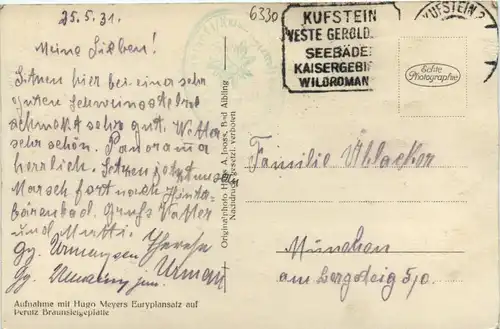 25.5.31.
6330
Meine Lieben!
Sitzen hier bei einer sehr
guten
schmeckt sehr gut. Wetter
sehr schön. Panorama
herrlich. Setzen jetzt unsern
Marsch fort nach Hinter-
bärenbad. Gruß Vatter
und Mutti.
KUFSTEIN
VESTE GEROLD
SEEBÄDE
KAISERGEBI
WILDROMAN
KUFSTEIN 2
Echte
Photographie
Familie
München
am Bergsteig 5/0
Originalphoto A. Jooss, Bad Aibling
Nachdruck gesetzl. verboten
Aufnahme mit Hugo Meyers Euryplansatz auf
Perutz Braunsiegelplatte